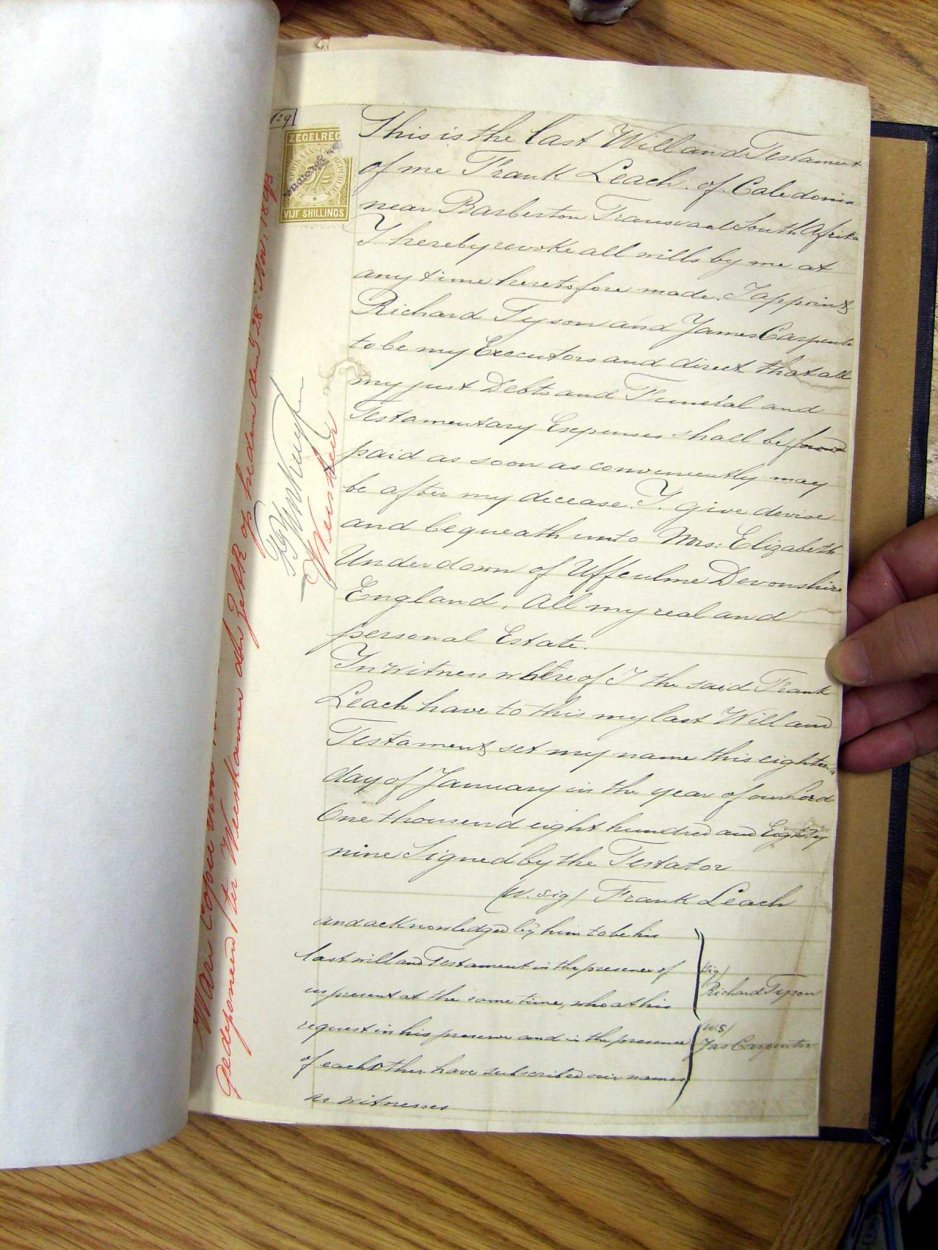 129
ZEGELREG
VIJF SHILLINGS
This is the last Will and Testament
of me Frank Leach of Caledonia
near Barberton Transvaal South Afrika
I hereby revoke all wills by me at
any time heretofore made. I appoint
Richard Tyson and James Carpente
to be my Executors and direct that all
my just Debts and Funeral and
Testamentary Expenses shall be
paid as soon as conveniently may
be after my decease. I give devise
and bequeath unto Mrs: Elizabeth
Underdown of Uffculme Devonshire
England, all my real and
personal Estate.
In witness whereof I the said Frank
Leach have to this my last Will and
Testament set my name this eighteen
day of January in the year of our Lord
One thousand eight hundred and Eighty
nine Signed by the Testator
(w.sig) Frank Leach
and acknowledged by him to be his
last will and Testament in the presence of
us present at the same time, who at his
request in his presence and in the presence
of each other have subscribed our names
as witnesses
sig/
Richard Tyson
w.s/
Jas Carpenter
Weesheer
Ware Copie
gedeponeerd ter Weeskamer der Z. A. R. op heden den 28. Nov. 1893